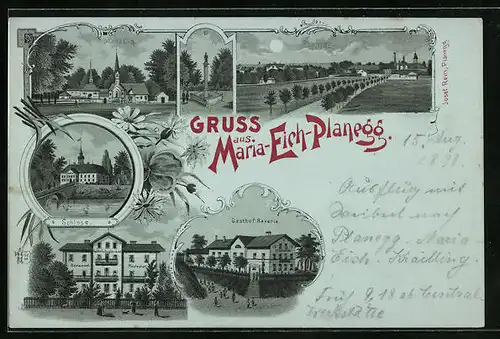 GRUSS
aus
Maria-Eich-Planegg.
Schloss.
Gasthof Bavaria
Josef Rein, Planegg
15. Aug.
1898.
Ausflug mit
nach
Planegg. Maria
Eich. Krailling.
Früh 9,18 ab Central